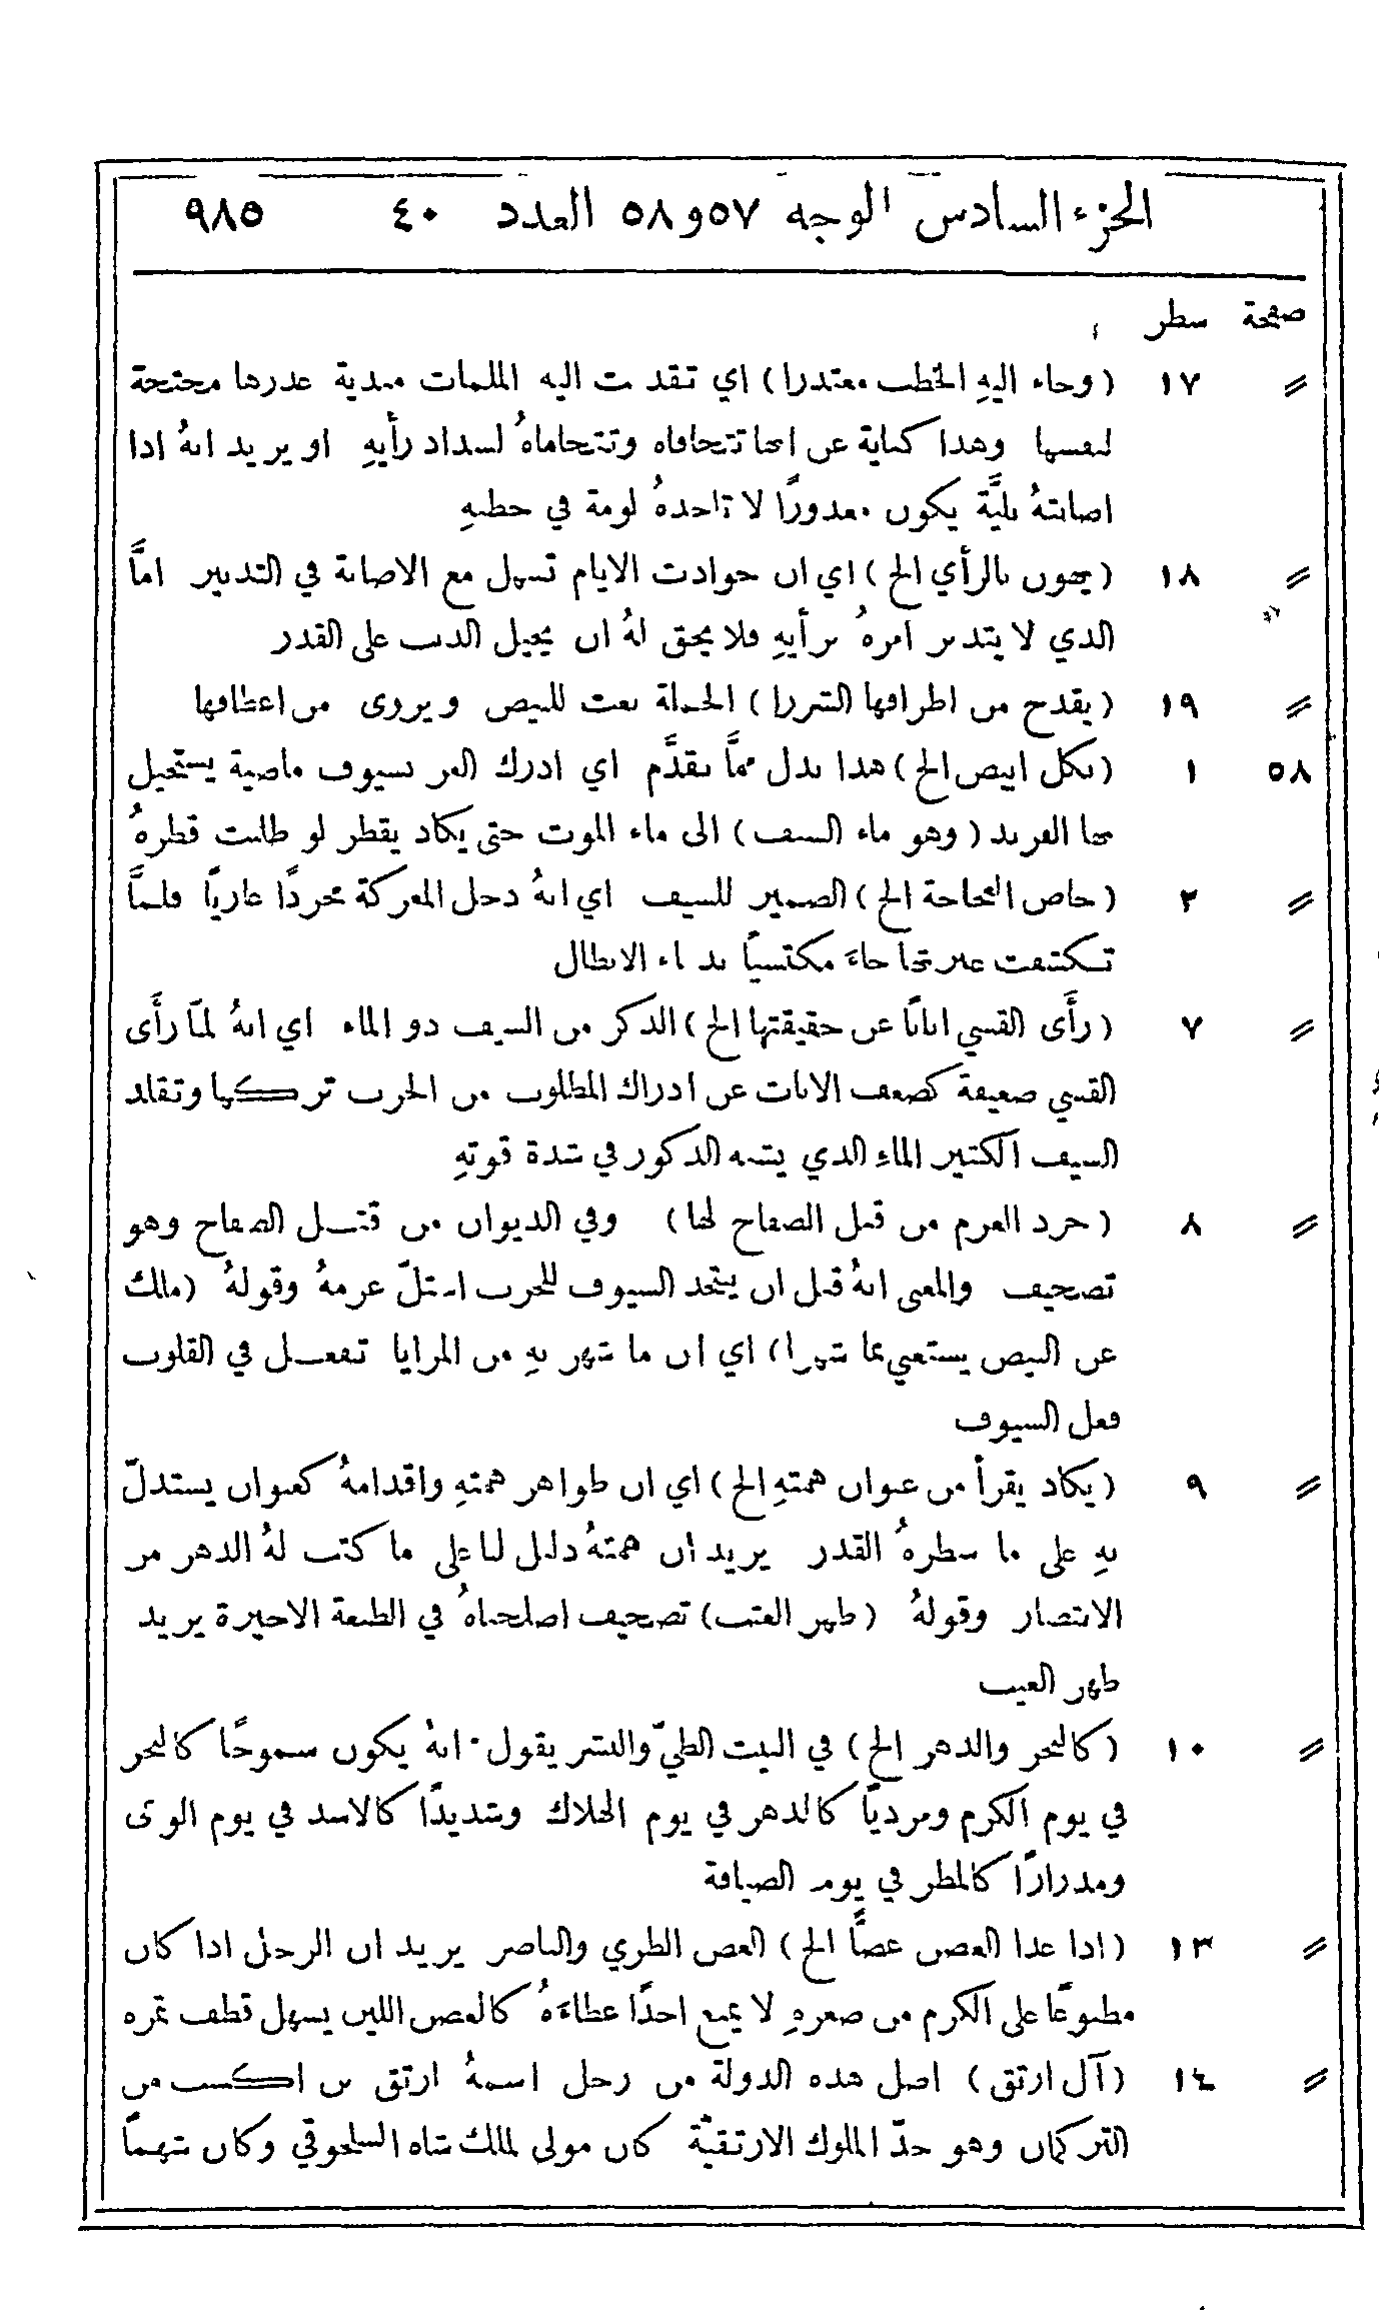 الجزء السادس الوجه ٥٧و٥٨ العدد ٤٠ ٩٨٥
صفحة سطر
〃 ١٧ (وجاء اليهِ الخطب معتذرا) اي تقدمت اليه الملمات مبدية عذرها محتجة
لنفسها وهذا كناية عن انها تتجافاه وتتحاماهُ لسداد رأيهِ او يريد انهُ اذا
اصابتهُ بليَّة يكون معذورًا لا تاخذهُ لومة في خطبهِ
〃 ١٨ (يهون بالرأي الخ) اي ان حوادث الايام تسهل مع الاصابة في التدبير امَّا
الذي لا يتدبر امرهُ برأيهِ فلا يحق لهُ ان يحيل الذنب على القدر
〃 ١٩ (يقدح من اطرافها الشررا) الجملة نعت للبيض ويروى من اعطافها
٥٨ ١ (بكل ابيض الخ) هذا بدل ممَّا تقدَّم اي ادرك العز بسيوف ماضية يستحيل
بها الفرند (وهو ماء السيف) الى ماء الموت حتى يكاد يقطر لو طلبت قطرهُ
〃 ٢ (خاض العجاجة الخ) الضمير للسيف اي انهُ دخل المعركة مجردًا عاريًا فلمَّا
تكشفت غبرتها جاءَ مكتسيًا بدماء الابطال
〃 ٧ (رأَى القسي اناثًا عن حقيقتها الخ) الذكر من السيف ذو الماء اي انهُ لمَّا رأَى
القسي ضعيفة كضعف الاناث عن ادراك المطلوب من الحرب تركها وتقلد
السيف الكثير الماءِ الذي يشبه الذكور في شدة قوتهِ
〃 ٨ (جرد العزم من قبل الصفاح لها) وفي الديوان من قتل الصفاح وهو
تصحيف والمعنى انهُ قبل ان يتخذ السيوف للحرب استلّ عزمهُ وقولهُ (ملك
عن البيض يستغني بما شهرا) اي ان ما شهر بهِ من المزايا تفعل في القلوب
فعل السيوف
〃 ٩ (يكاد يقرأ من عنوان همتهِ الخ) اي ان ظواهر همتهِ واقدامهُ كعنوان يستدلّ
بهِ على ما سطرهُ القدر يريد ان همتهُ دليل لنا على ما كتب لهُ الدهر من
الانتصار وقولهُ (ظهر العتب) تصحيف اصلحناهُ في الطبعة الاخيرة يريد
ظهر الغيب
〃 ١٠ (كالبحر والدهر الخ) في البيت الطيّ والنشر يقول انهُ يكون سموحًا كالبحر
في يوم الكرم ومرديًا كالدهر في يوم الهلاك وشديدًا كالاسد في يوم الوغى
ومدرارًا كالمطر في يوم الضيافة
〃 ١٣ (اذا غدا الغصن غضًّا الخ) الغض الطري والناضر يريد ان الرجل اذا كان
مطبوعًا على الكرم من صغرهِ لا يمنع احدًا عطاءَهُ كالغصن اللين يسهل قطف ثمره
〃 ١٤ (آل ارتق) اصل هذه الدولة من رجل اسمهُ ارتق بن اكسب من
التركمان وهو جدّ الملوك الارتقيَّة كان مولى لملك شاه السلجوقي وكان شهمًا